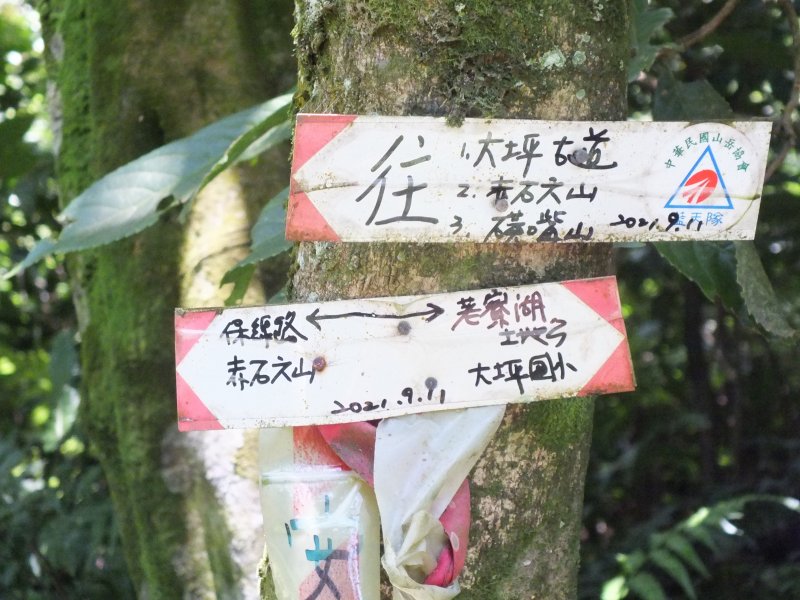 往
1. 大坪古道
2. 赤石穴山
3. 磺嘴山
2021.9.11
中華民國山岳協會
保線路 ⟷ 荖寮湖
土地ろ
赤石穴山
大坪國小
2021.9.11